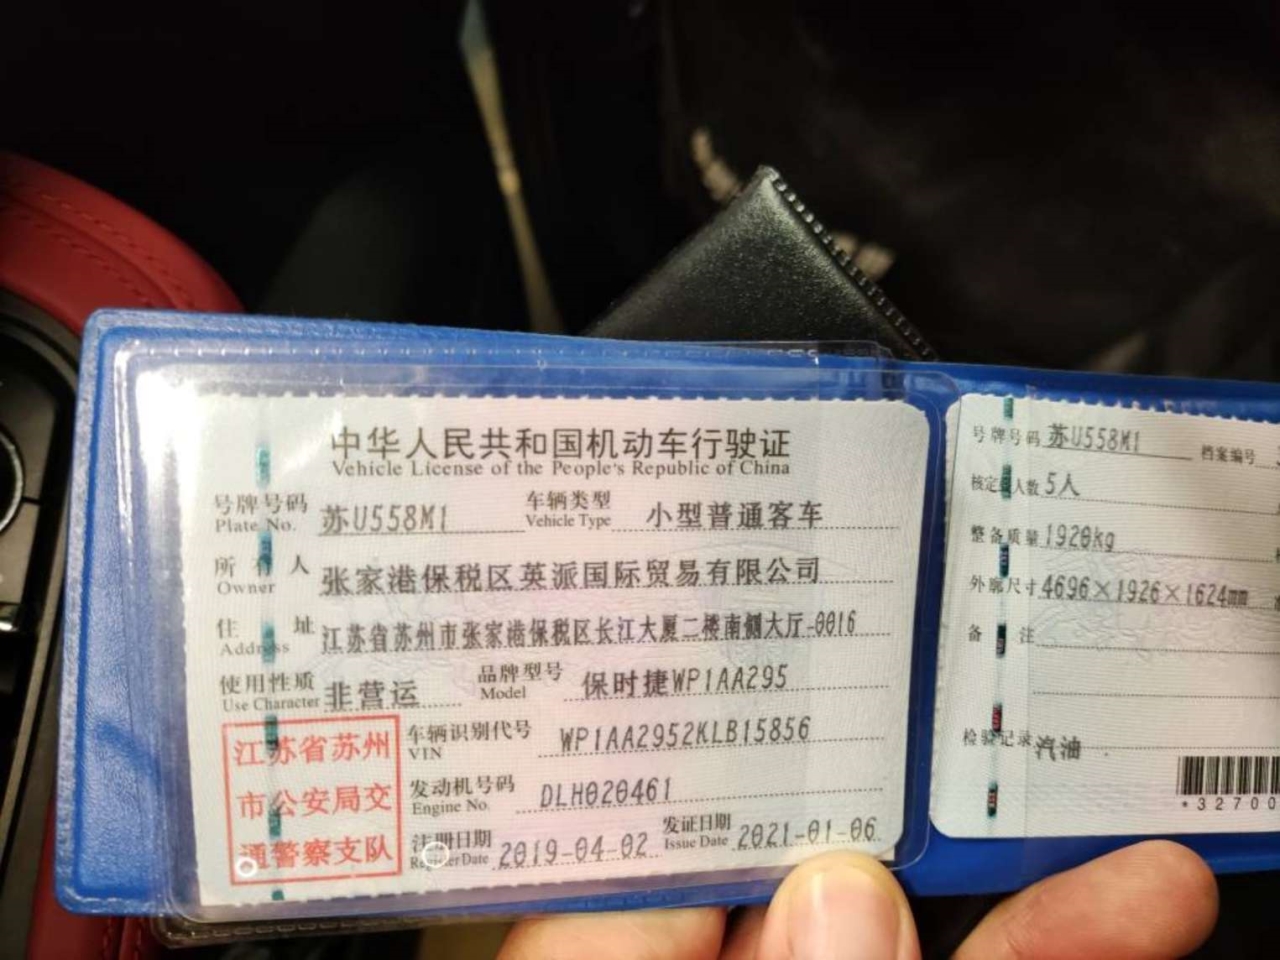 中华人民共和国机动车行驶证
Vehicle License of the People's Republic of China
号牌号码 苏U558M1 车辆类型 小型普通客车
Plate No. Vehicle Type
所有人 张家港保税区英派国际贸易有限公司
Owner
住址 江苏省苏州市张家港保税区长江大厦二楼南侧大厅-0016
Address
使用性质 非营运 品牌型号 保时捷WP1AA295
Use Character Model
江苏省苏州
市公安局交
通警察支队
车辆识别代号 WP1AA2952KLB15856
VIN
发动机号码 DLH020461
Engine No.
注册日期 2019-04-02 发证日期 2021-01-06
Register Date Issue Date
号牌号码 苏U558M1 档案编号
核定载人数 5人
整备质量 1920kg
外廓尺寸 4696×1926×1624mm
备注
检验记录 汽油
*32700